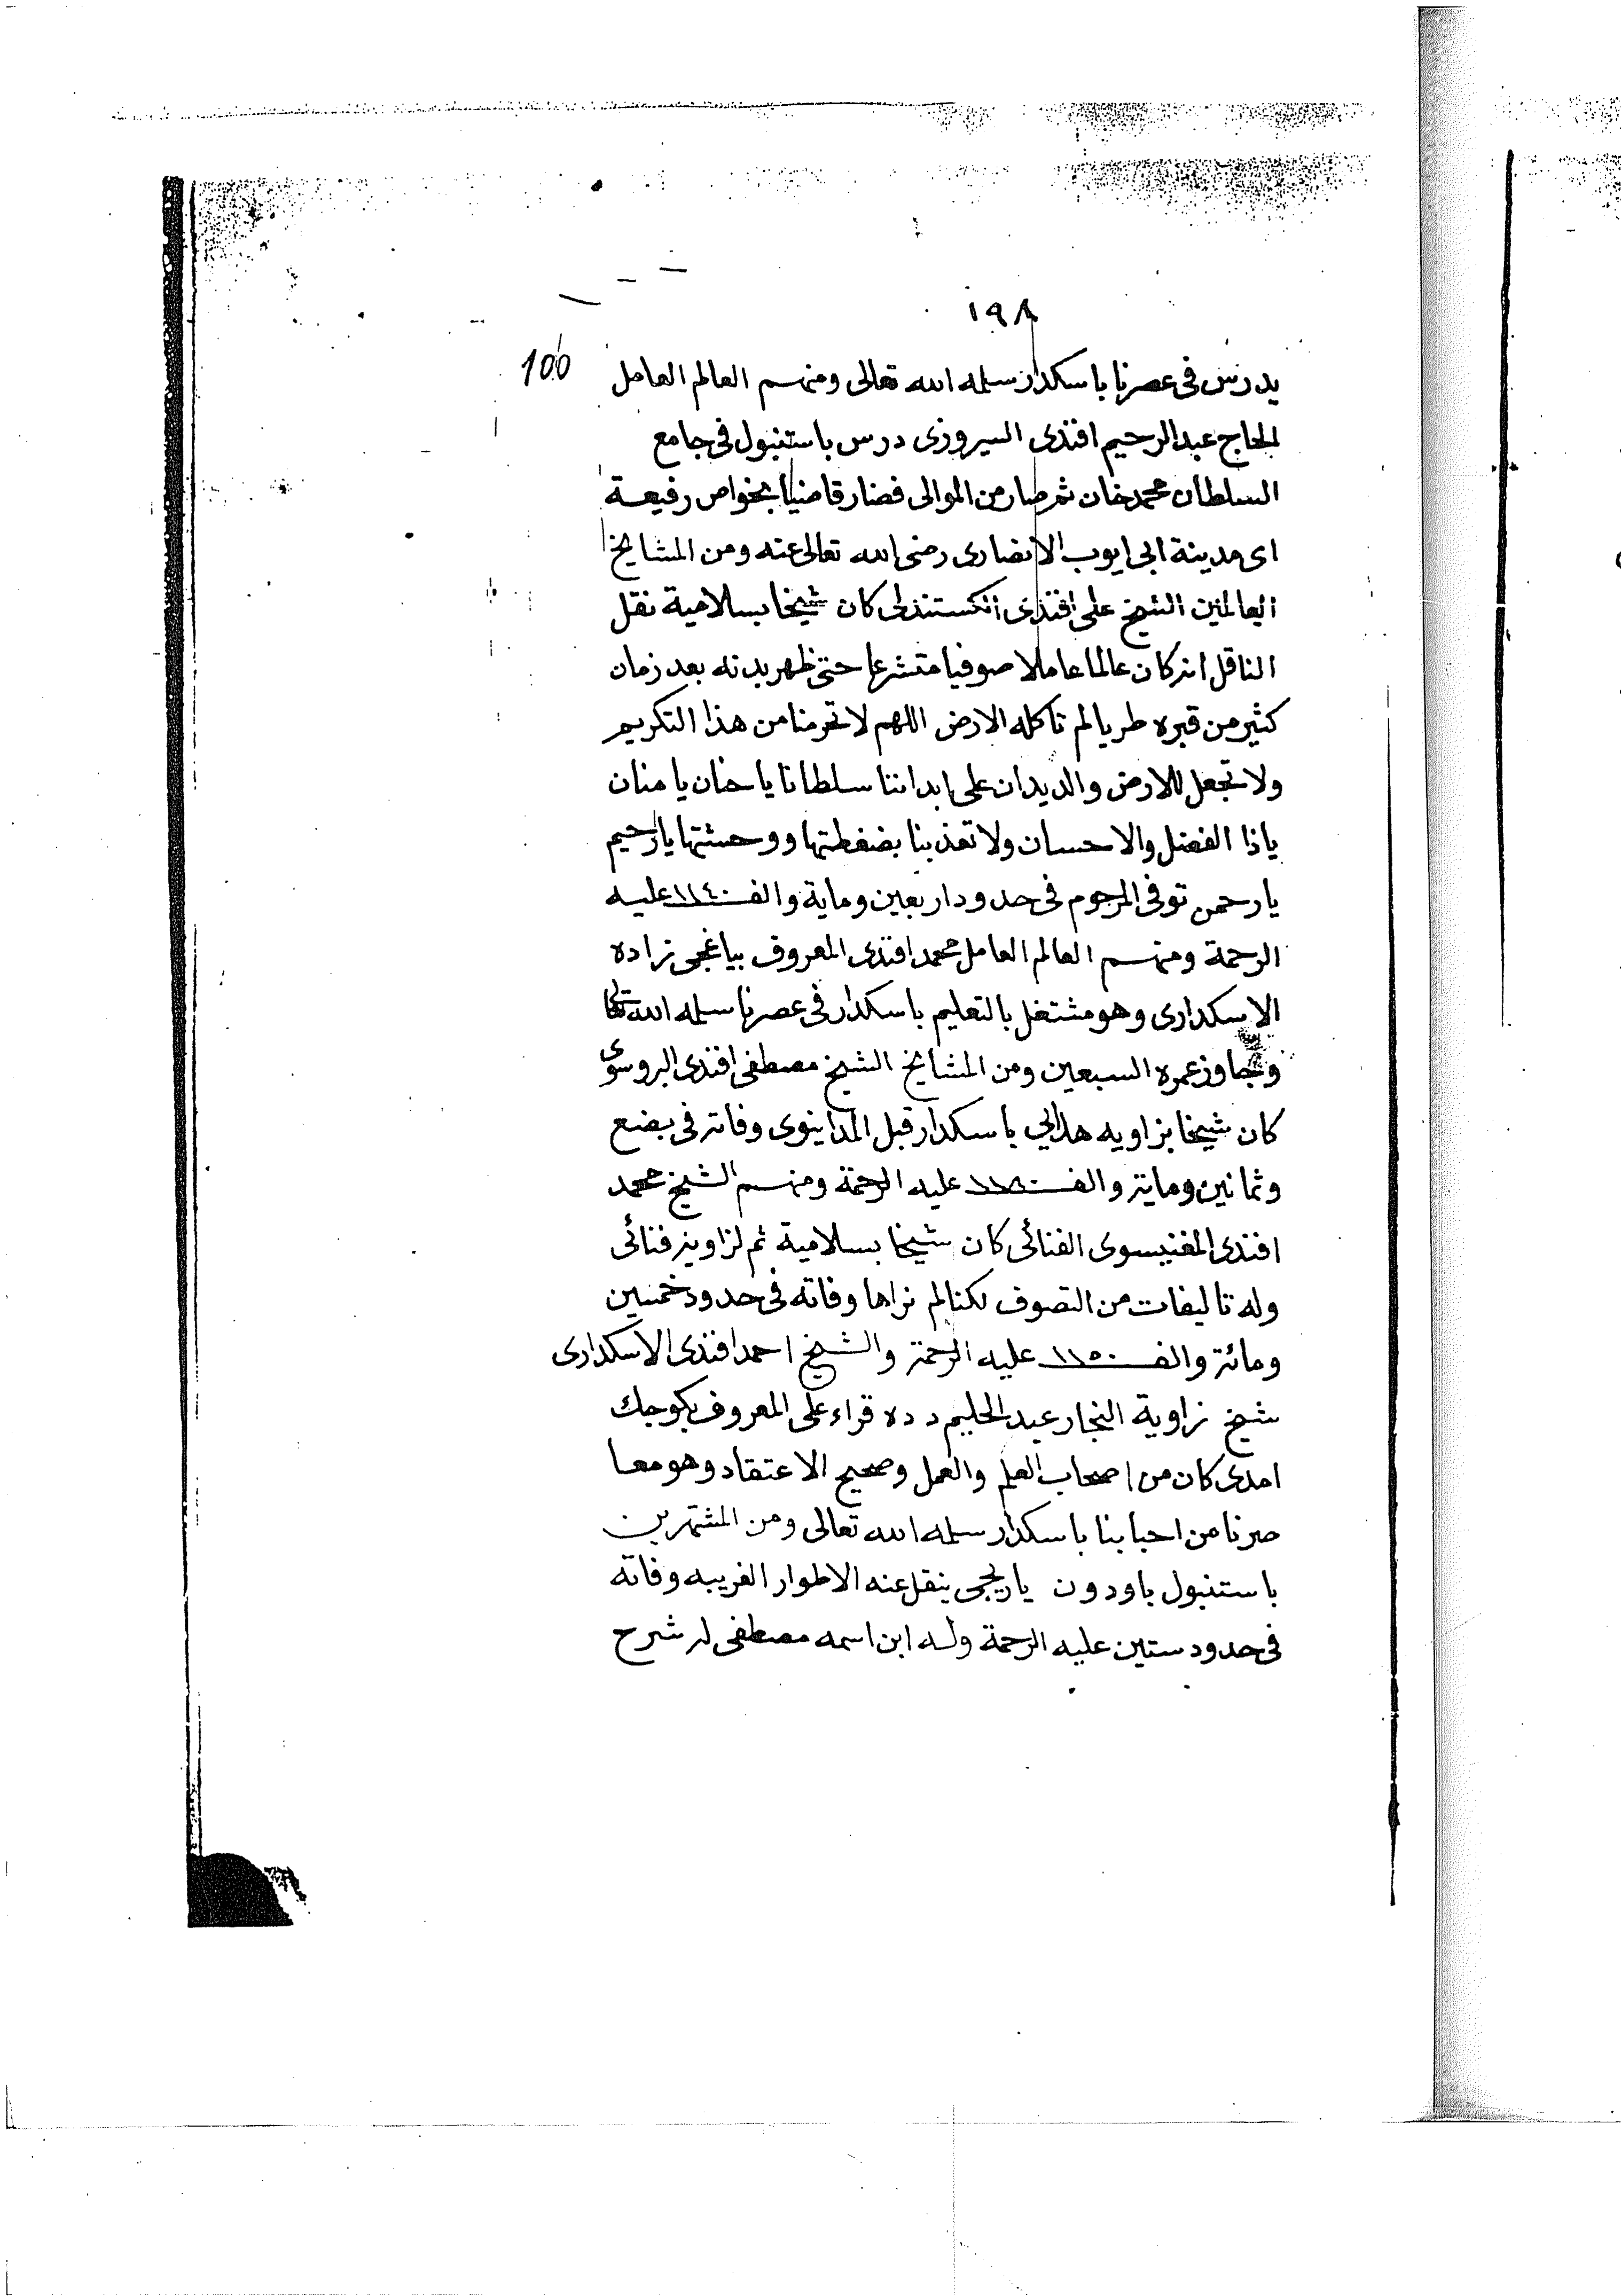 ١٩٨
100
يدرس فى عصرنا باسكدار سلمه الله تعالى ومنهم العالم العامل
الحاج عبد الرحيم افندى السيروزى درس باستنبول فى جامع
السلطان محمد خان ثم صار من الموالى فصار قاضيا بخواص رفيعة
اى مدينة ابى ايوب الانصارى رضى الله تعالى عنه ومن المشايخ
العالمين الشيخ على افندى الكستندلى كان شيخا بسلامية نقل
الناقل انه كان عالما عاملا صوفيا متشرعا حتى ظهر بدنه بعد زمان
كثير من قبره طريا لم تاكله الارض اللهم لا تحرمنا من هذا التكريم
ولا تجعل للارض والديدان على ابداننا سلطانا يا حنان يا منان
ياذا الفضل والاحسان ولا تعذبنا بضغطتها ووحشتها يا رحيم
يا رحمن توفى المرحوم فى حدود اربعين وماية والف ١١٤٠ عليه
الرحمة ومنهم العالم العامل محمد افندى المعروف بياغجى زاده
الاسكدارى وهو مشتغل بالتعليم باسكدار فى عصرنا سلمه الله تعالى
وتجاوز عمره السبعين ومن المشايخ الشيخ مصطفى افندى البروسوى
كان شيخا بزاويه هدايى باسكدار قبل المداينوى وفاته فى بضع
وثمانين وماية والف ١١٨٠ عليه الرحمة ومنهم الشيخ محمد
افندى المغنيسوى الفنائى كان شيخا بسلامية ثم لزاوية فنائى
وله تاليفات من التصوف لكنا لم نراها وفاته فى حدود خمسين
ومائة والف ١١٥٠ عليه الرحمة والشيخ احمد افندى الاسكدارى
شيخ زاوية النجار عبد الحليم دده قراء على المعروف بكوجك
امدى كان من اصحاب العلم والعمل وصحيح الاعتقاد وهو معا
صرنا من احبابنا باسكدار سلمه الله تعالى ومن المشتهرين
باستنبول باودون ياريجى ينقل عنه الاطوار الغريبه وفاته
فى حدود ستين عليه الرحمة وله ابن اسمه مصطفى له شرح